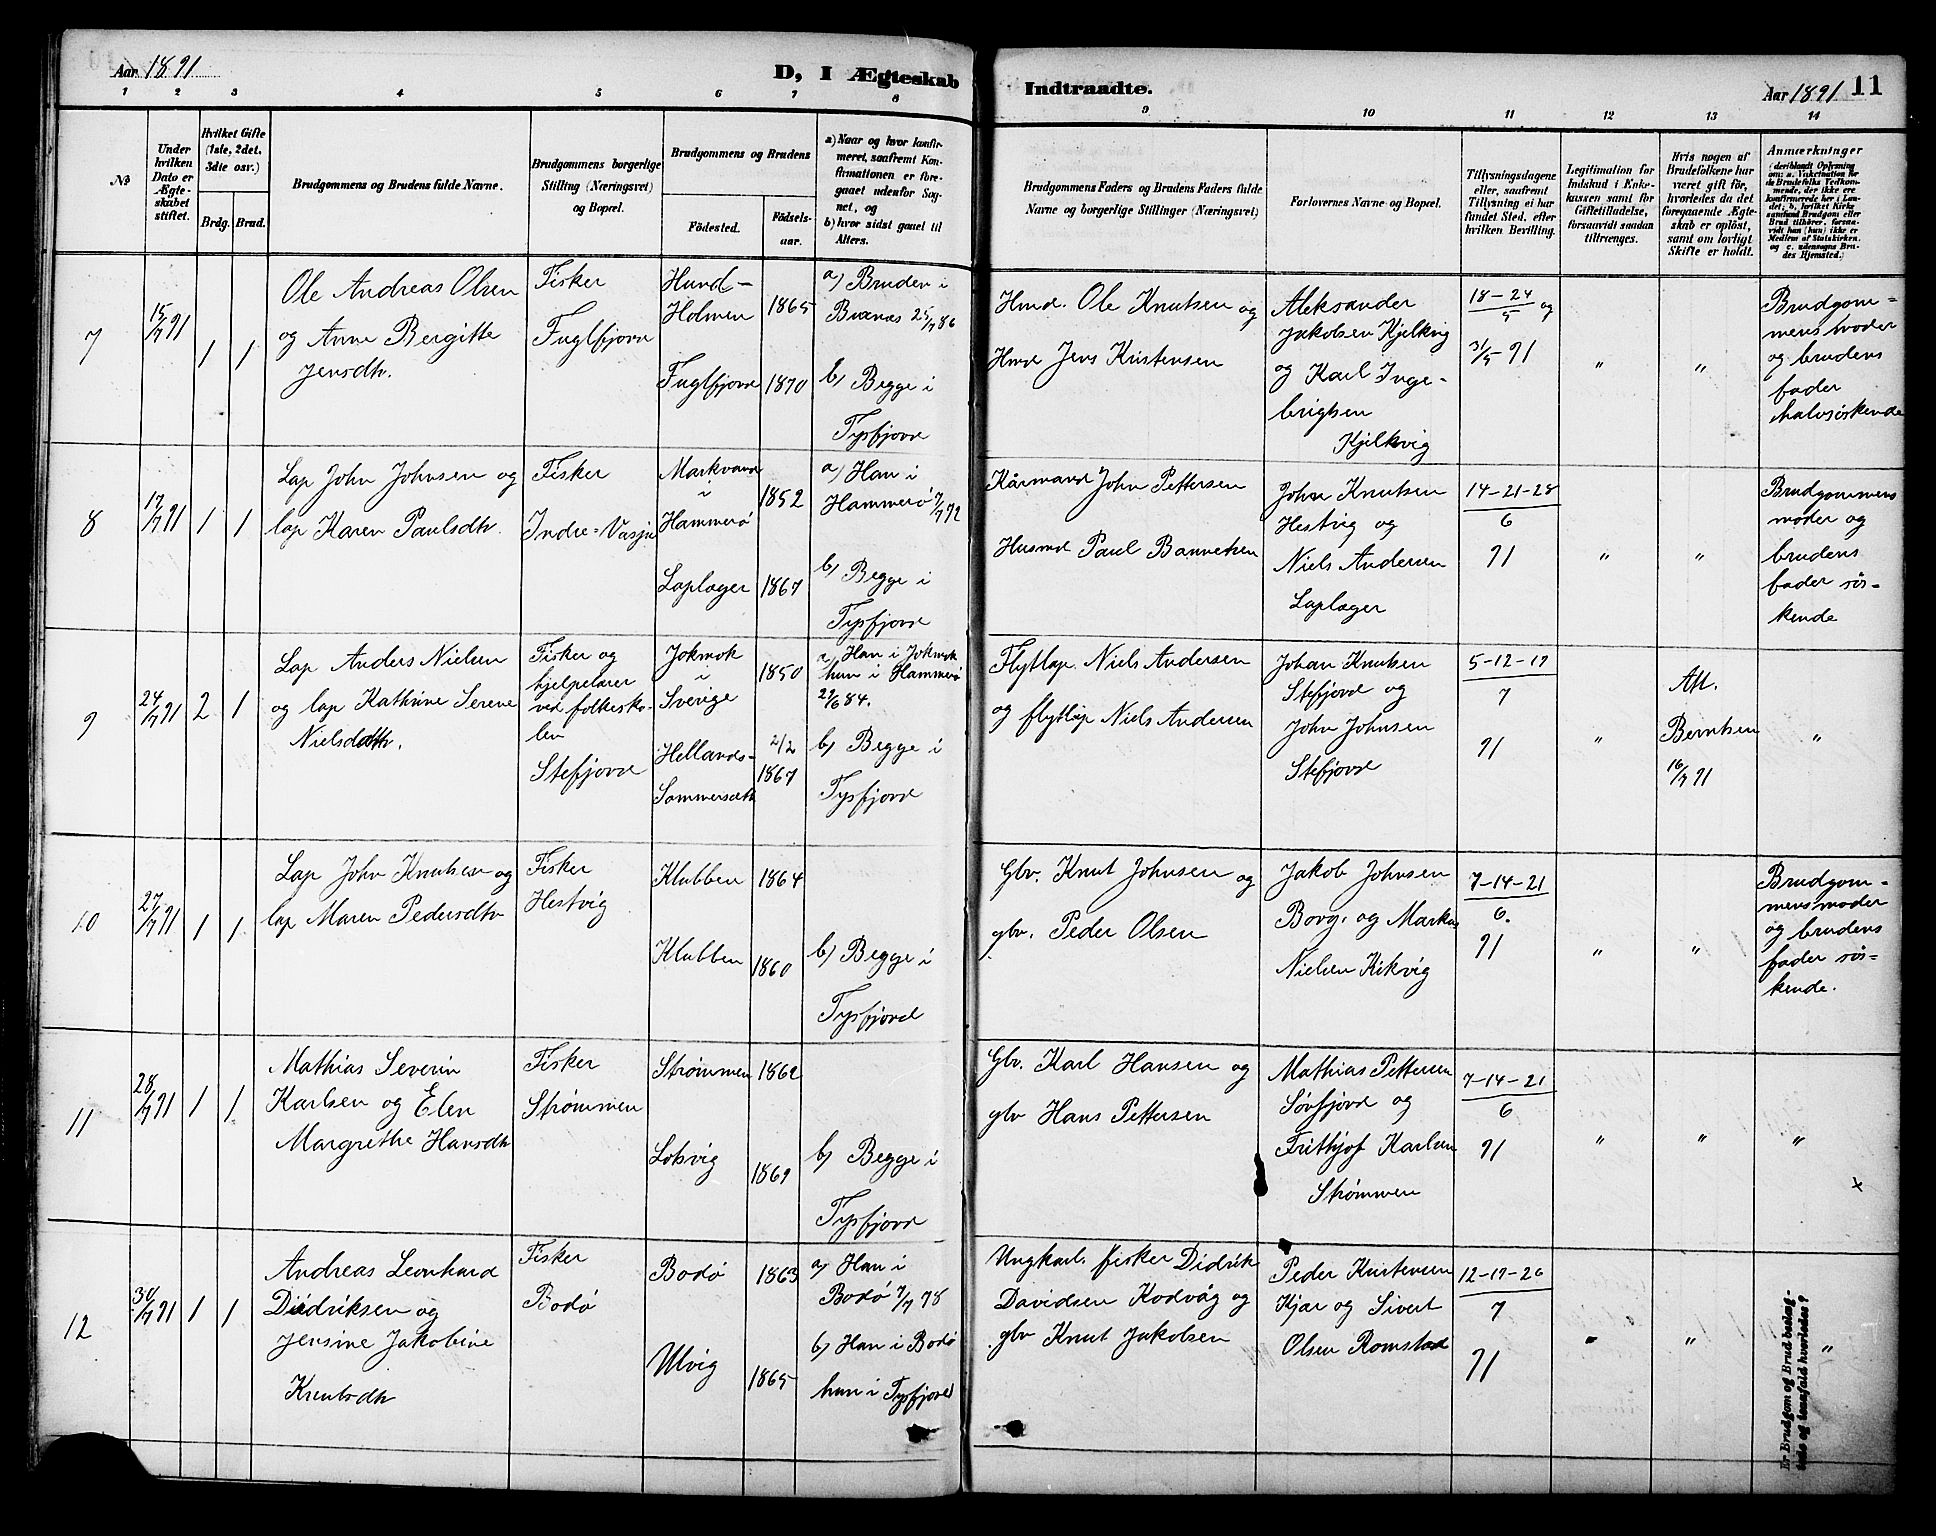 Aar 1891
D, I Ægteskab
Indtraadte.
Aar 1891
11
1 2 3 4 5 6 7 8 9 10 11 12 13 14
№
Under hvilken Dato er Ægteskabet stiftet.
Hvilket Gifte (1ste, 2det, 3die osv.)
Brdg. Brud.
Brudgommens og Brudens fulde Navne.
Brudgommens borgerlige Stilling (Næringsvei) og Bopæl.
Brudgommens og Brudens
Fødested.
Fødselsaar.
a) Naar og hvor konfirmeret, saafremt Konfirmationen er foregaaet udenfor Sognet, og
b) hvor sidst gaaet til Alters.
Brudgommens Faders og Brudens Faders fulde Navne og borgerlige Stillinger (Næringsvei)
Forlovernes Navne og Bopæl.
Tillysningsdagene eller, saafremt Tillysning ei har fundet Sted, efter hvilken Bevilling.
Legitimation for Indskud i Enkekassen samt for Giftetilladelse, forsaavidt saadan tiltrænges.
Hvis nogen af Brudefolkene har været gift før, hvorledes da det foregaaende Ægteskab er opløst, samt om lovligt Skifte er holdt.
Anmærkninger
(deriblandt Oplysning om: a. Vakcination for de Brudefolks Vedkommende, der ikke ere konfirmerede her i Landet; b. hvilket Kirkesamfund Brudgom eller Brud tilhører, forsaavidt han (hun) ikke er Medlem af Statskirken, og c. udensogns Brudes Hjemsted.)
7
15/7 91
1
1
Ole Andreas Olsen
og Anne Bergitte
Jensdtr.
Fisker
Fuglfjord
Hund-
Holmen
1865
Fuglfjord
1870
a) Bruden i
Buxnæs 25/7 86
b) Begge i
Tysfjord
Hmd. Ole Knutsen og
Hmd Jens Kristensen
Aleksander
Jakobsen Kjelkvig
og Karl Inge-
brigtsen
Kjelkvig
18-24/5 og
31/5 91
"
"
Brudgom-
mens moder
og brudens
fader
halvsöskende
8
17/7 91
1
1
Lap John Johnsen og
lap Karen Paulsdtr.
Fisker
Indre=Vasja
Markvand
i
Hammerø
1852
Laplæger
1867
a) Han i
Hammerø 7/7 72
b) Begge i
Tysfjord
Kårmand John Pettersen
Husmd Paul
John Knutsen
Hestvig og
Niels Andersen
Laplæger
14-21-28
6
91
"
"
Brudgommens
moder og
brudens
fader sös-
kende
9
24/7 91
2
1
Lap Anders Nielsen
og lap Kathrine Serene
Nielsdatr.
Fisker og
hjelpelærer
ved folkesko-
len
Stefjord
Jokmok
i
Sverige
1850
Hellands-
Sommersæth
2/2
1867
a) Han i Jokmok
hun i Hammerö
29/6 84.
b) Begge i
Tysfjord
Flytlap. Niels Andersen
og flytlap Niels Andersen
Johan Knutsen
Stefjord og
John Johnsen
Stefjord
5-12-19
7
91
"
Att.
Berntsen
16/7 91
"
10
27/7 91
1
1
Lap John Knutsen og
lap Maren Pedersdtr
Fisker
Hestvig
Klubben
1864
Klubben
1860
b) Begge i
Tysfjord
Gbr. Knut Johnsen og
gbr. Peder Olsen
Jakob Johnsen
Borg. og Markus
Nielsen Kikvig
7-14-21
6.
91
"
"
Brudgom-
mens moder
og brudens
fader sös-
kende.
11
28/7 91
1
1
Mathias Severin
Karlsen og Elen
Margrethe Hansdtr
Fisker
Strømmen
Strømmen
1862
Lokvig
1869
b) Begge i
Tysfjord
Gbr. Karl Hansen og
gbr Hans Pettersen
Mathias Pettersen
Sørfjord og
Frithjof Karlsen
Strømmen
7-14-21
6
91
"
"
"
12
30/7 91
1
1
Andreas Leonhard
Didriksen og
Jensine Jakobine
Knutsdtr
Fisker
Bodø
Bodø
1863
Ulvig
1865
a) Han i
Bodø 7/7 78
b) Han i Bodø
hun i Tysfjord
Ungkarl. fisker Didrik
Davidsen Kodvåg og
gbr Knut Jakobsen
Peder Kristensen
Kjær og Sivert
Olsen Romstad
12-19-26
7
91
"
"
Er Brudgom og Brud beslægtede og isaafald hvorledes?